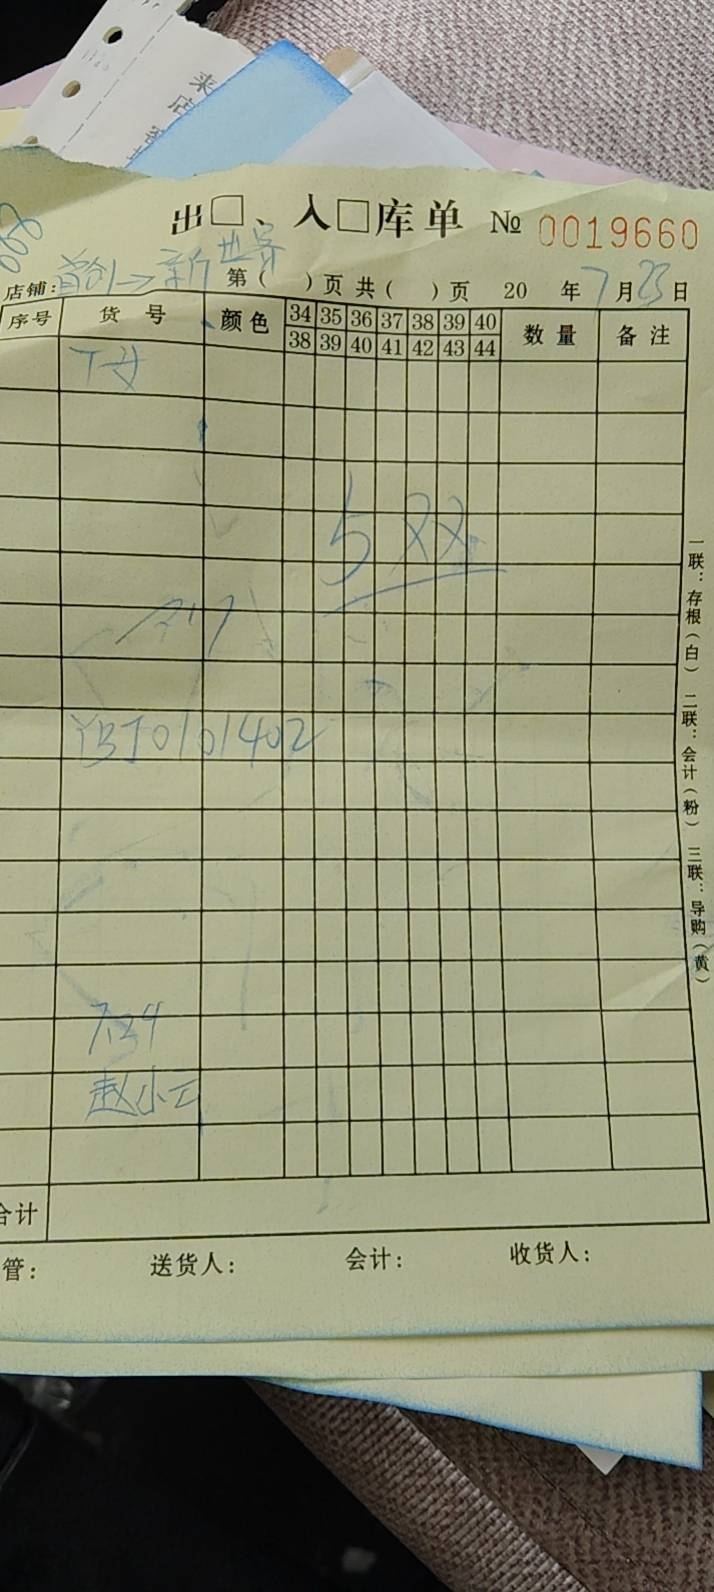 来店
出□、入□库单 № 0019660
店铺: 首创→新世界 第( )页 共( )页 20 年 7 月 23 日
序号 货号 颜色 34 35 36 37 38 39 40 数量 备注
38 39 40 41 42 43 44
T女
5双
YBJ0101402
7.24
赵小云
合计
管: 送货人: 会计: 收货人:
一联:存根(白) 二联:会计(粉) 三联:导购(黄)